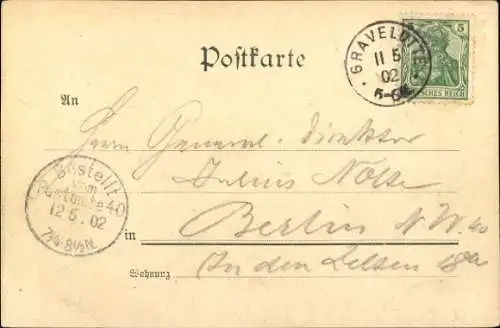 Postkarte
GRAVELOTTE
11 5
02
5-6N
5
DEUTSCHES REICH
An
Herrn General-Direktor
Julius Nolte
Bestellt
vom
Postamte 40
12 5. 02
7¼-8½N.
in Berlin N.W. 40
Wohnung In den Zelten 18a